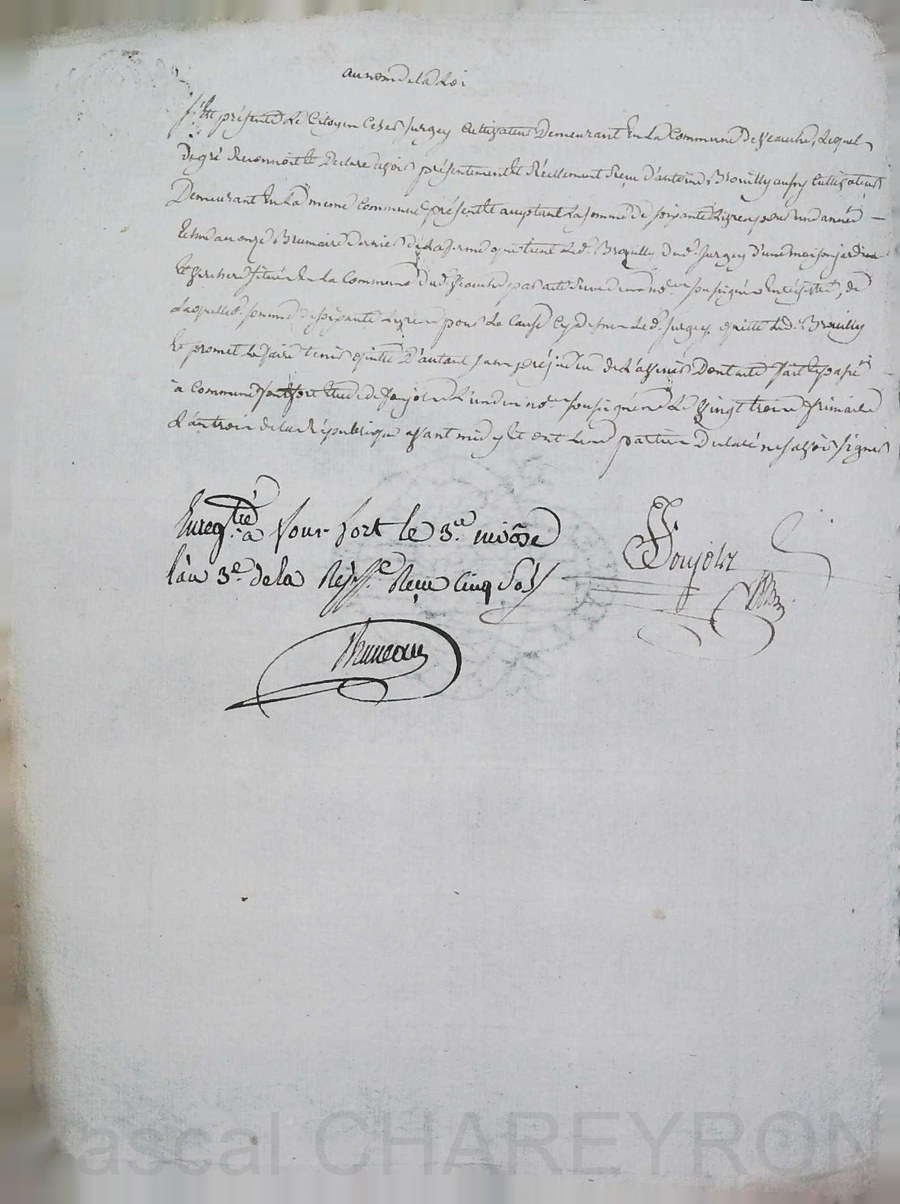 au nom de la Loi
fut présent Le Citoyen Cesar Surgey Cultivateur Demeurant En La Commune de Veauche, Lequel
De gré Reconnoit Et Declare avoir présentement Et Réellement Reçu d'antoine Brouilly aussy Cultivateur
Demeurant En La meme Commune présent Et aceptant La somme de soixante Livres pour une année
Echue au onze Brumaire dernier De La ferme que tient Led. Brouilly dud. Surgey d'une maison jardin
Et situés En La Commune dud. Veauche par acte Reçu du no.re soussigné Enregistré, de
Laquelle somme de soixante Livres pour La Cause Cy dessus Led. Surgey quitte Led. Brouilly
Et promet Le faire tenir quitte D'autant sans préjudice De Dont acte fait Et passé
à Commune fort Etude de Soujols L'un des no.res soussignés Le vingt trois frimaire
L'an trois de La République avant midy Et ont Les parties Declaré ne savoir signer
Enreg.tré à Commune fort le 3.e nivôse
l'an 3.e de la Rép.e Reçu Cinq Sols
Soujols
Bruneau
Pascal CHAREYRON